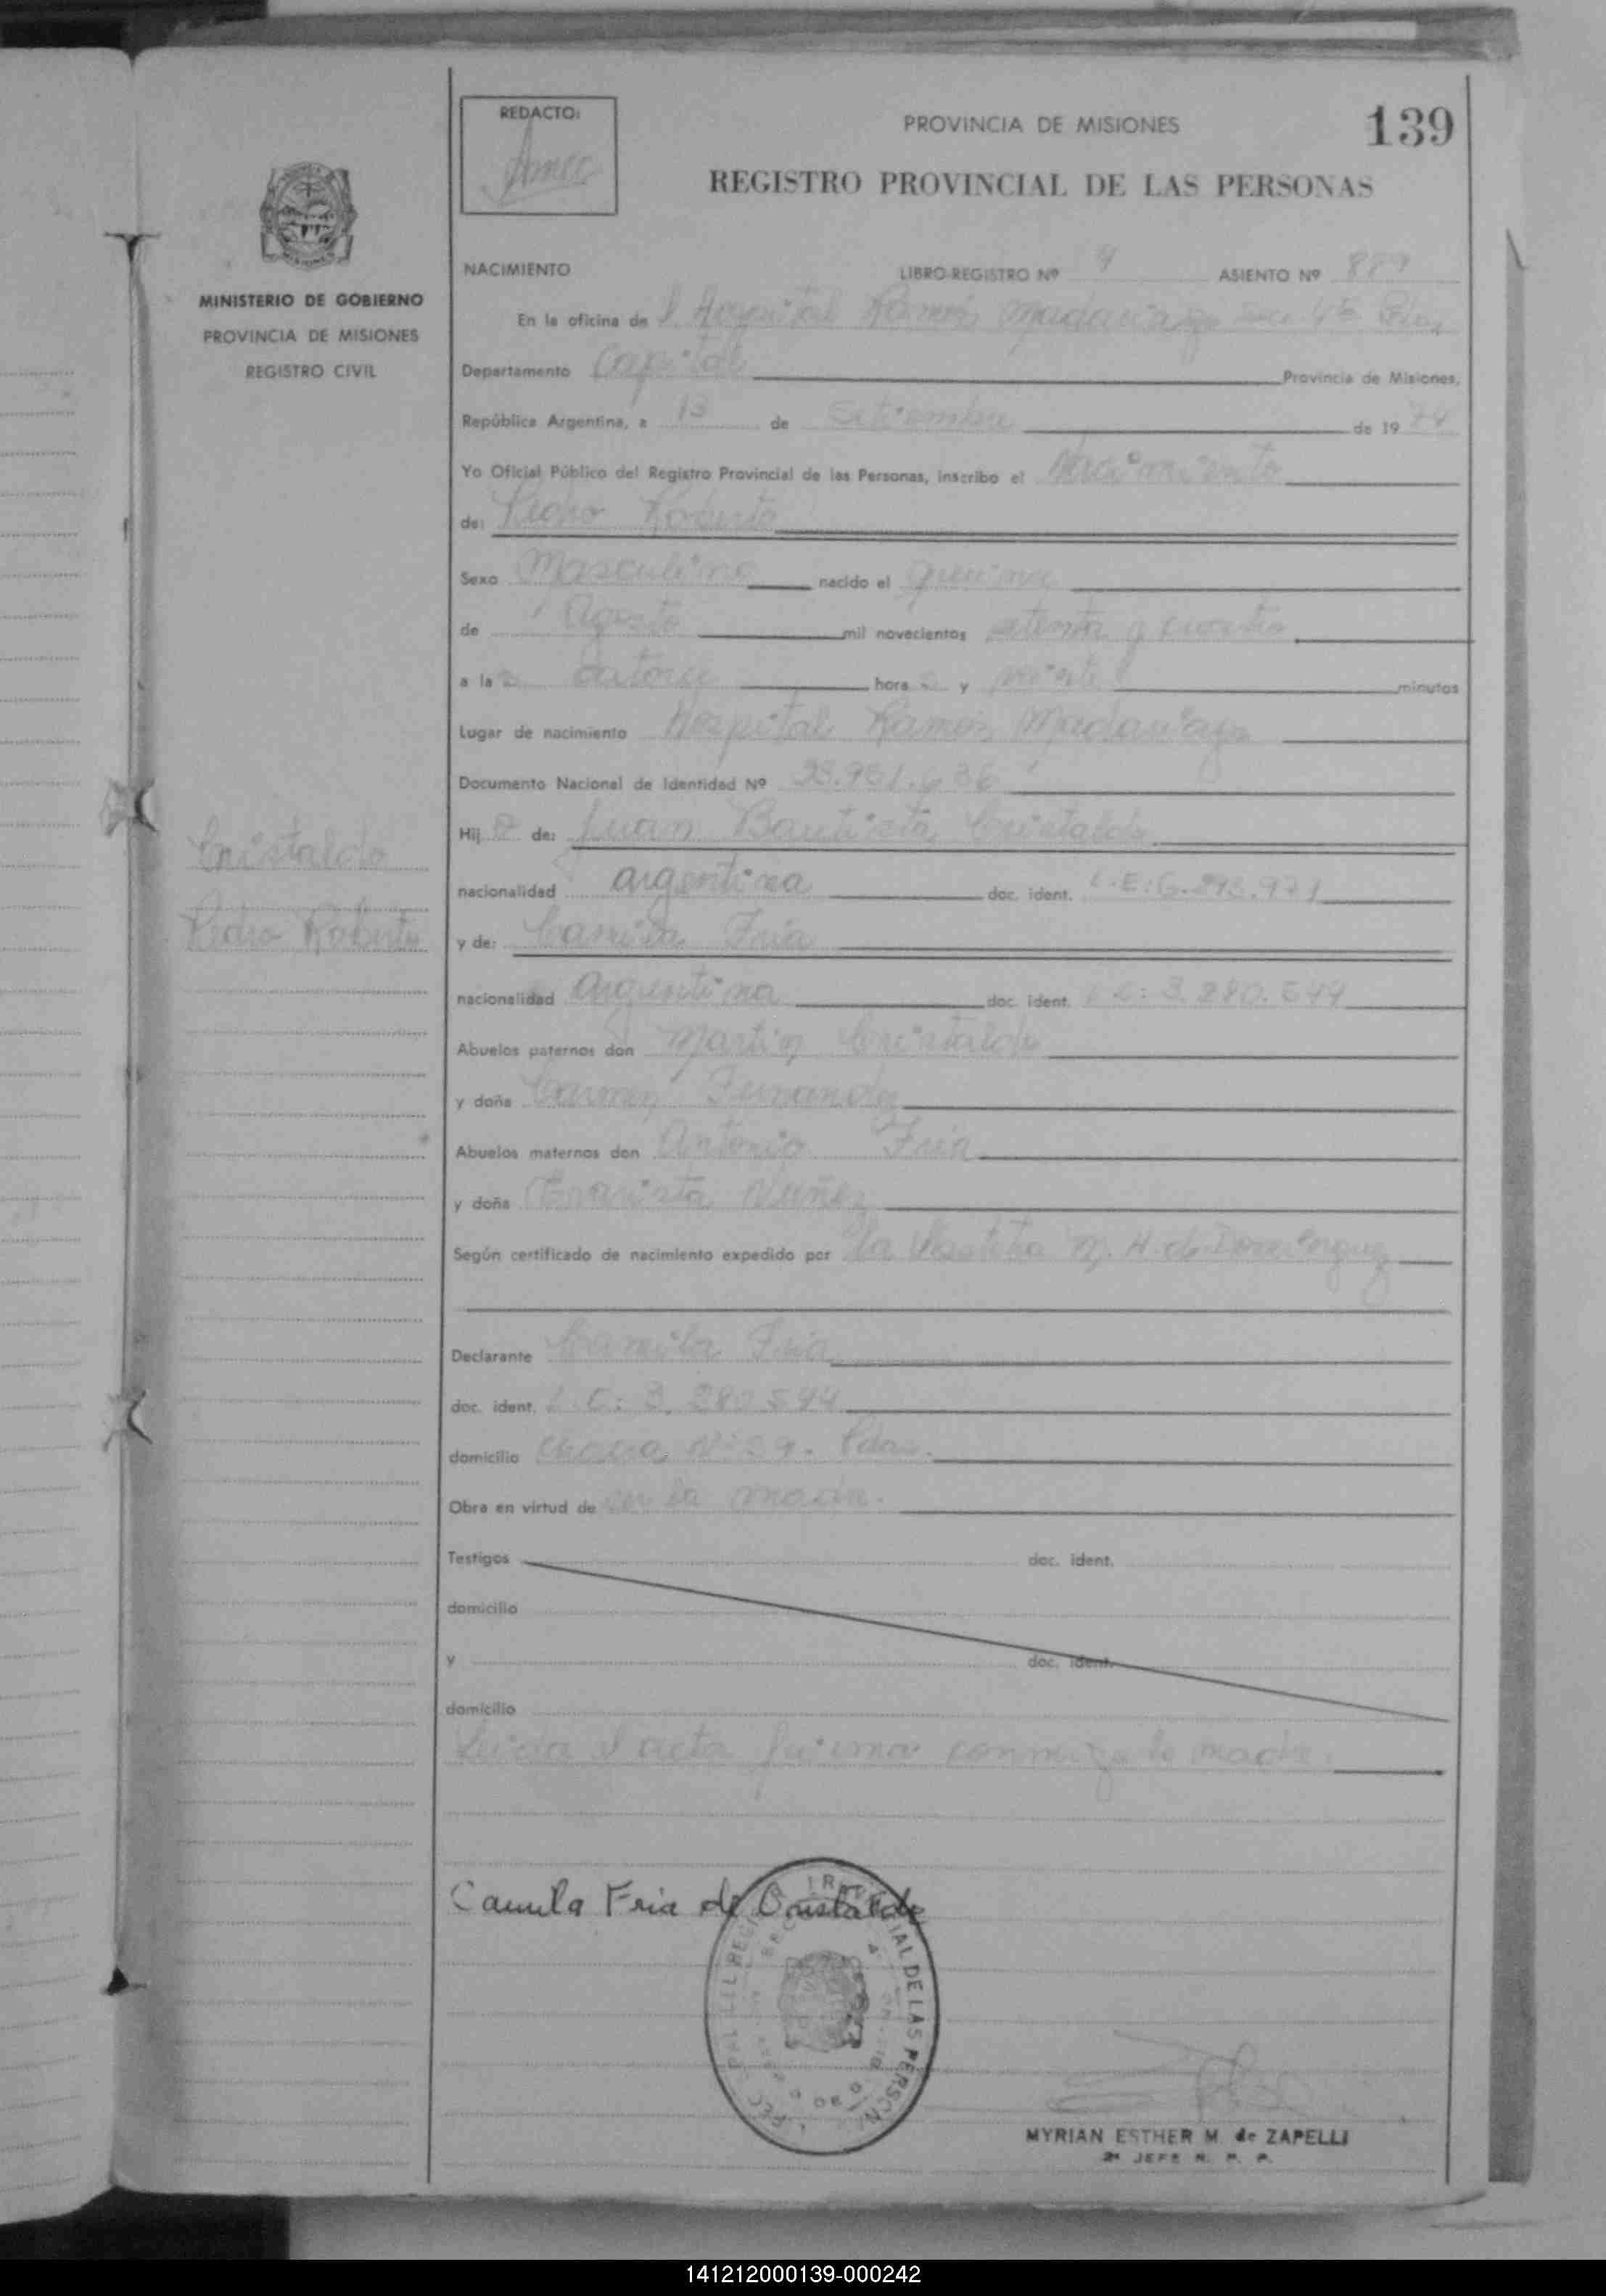 REDACTO:
PROVINCIA DE MISIONES
139
REGISTRO PROVINCIAL DE LAS PERSONAS
MINISTERIO DE GOBIERNO
PROVINCIA DE MISIONES
REGISTRO CIVIL
NACIMIENTO LIBRO-REGISTRO Nº ASIENTO Nº
En la oficina de l Hospital Ramón Madariaga Secc 4ta
Departamento Capital Provincia de Misiones,
República Argentina, a 13 de Setiembre de 1974
Yo Oficial Público del Registro Provincial de las Personas, inscribo el Nacimiento
de: Pedro Roberto
Sexo Masculino nacido el quince
de Agosto mil novecientos setenta y cuatro
a las catorce horas y veinte minutos
Lugar de nacimiento Hospital Ramón Madariaga
Documento Nacional de Identidad Nº 23.951.636
Hijo de: Juan Bautista Cristaldo
nacionalidad argentina doc. ident. L.E: 971
Cristaldo
Pedro Roberto
y de: Camila Fria
nacionalidad argentina doc. ident. 3.280.544
Abuelos paternos don Martin Cristaldo
y doña Carmen Fernandez
Abuelos maternos don Antonio Fria
y doña Nuñez
Según certificado de nacimiento expedido por la M. H. de Dominguez
Declarante Camila Fria
doc. ident. L C: 3.280.544
domicilio Chacra Nº 39. Pdas.
Obra en virtud de ser la madre.
Testigos doc. ident.
domicilio
y doc. ident.
domicilio
Leida el acta firma conmigo la madre.
Camila Fria de Cristaldo
MYRIAN ESTHER M. de ZAPELLI
2º JEFE R. P. P.
141212000139-000242